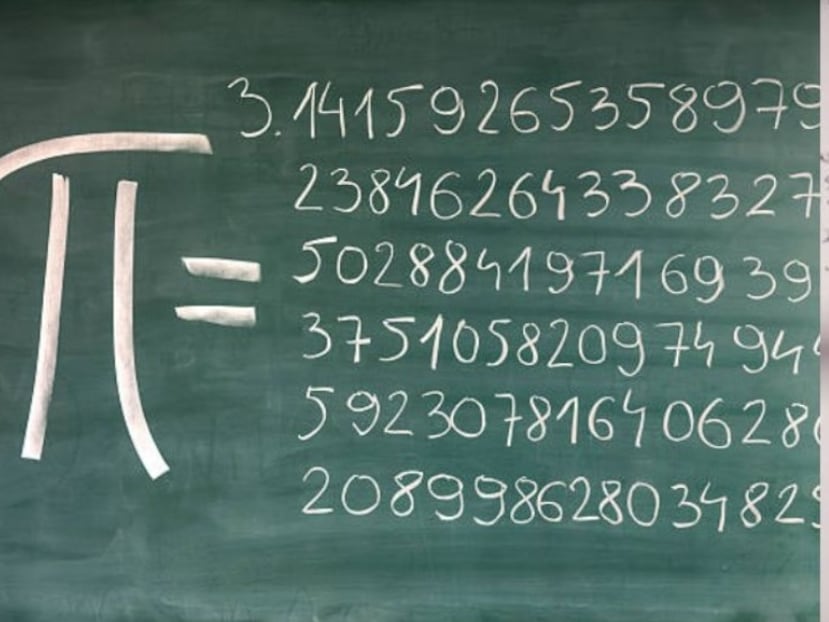 π = 3.14159265358979
23846264338327
50288419716939
37510582097494
59230781640628
20899862803482